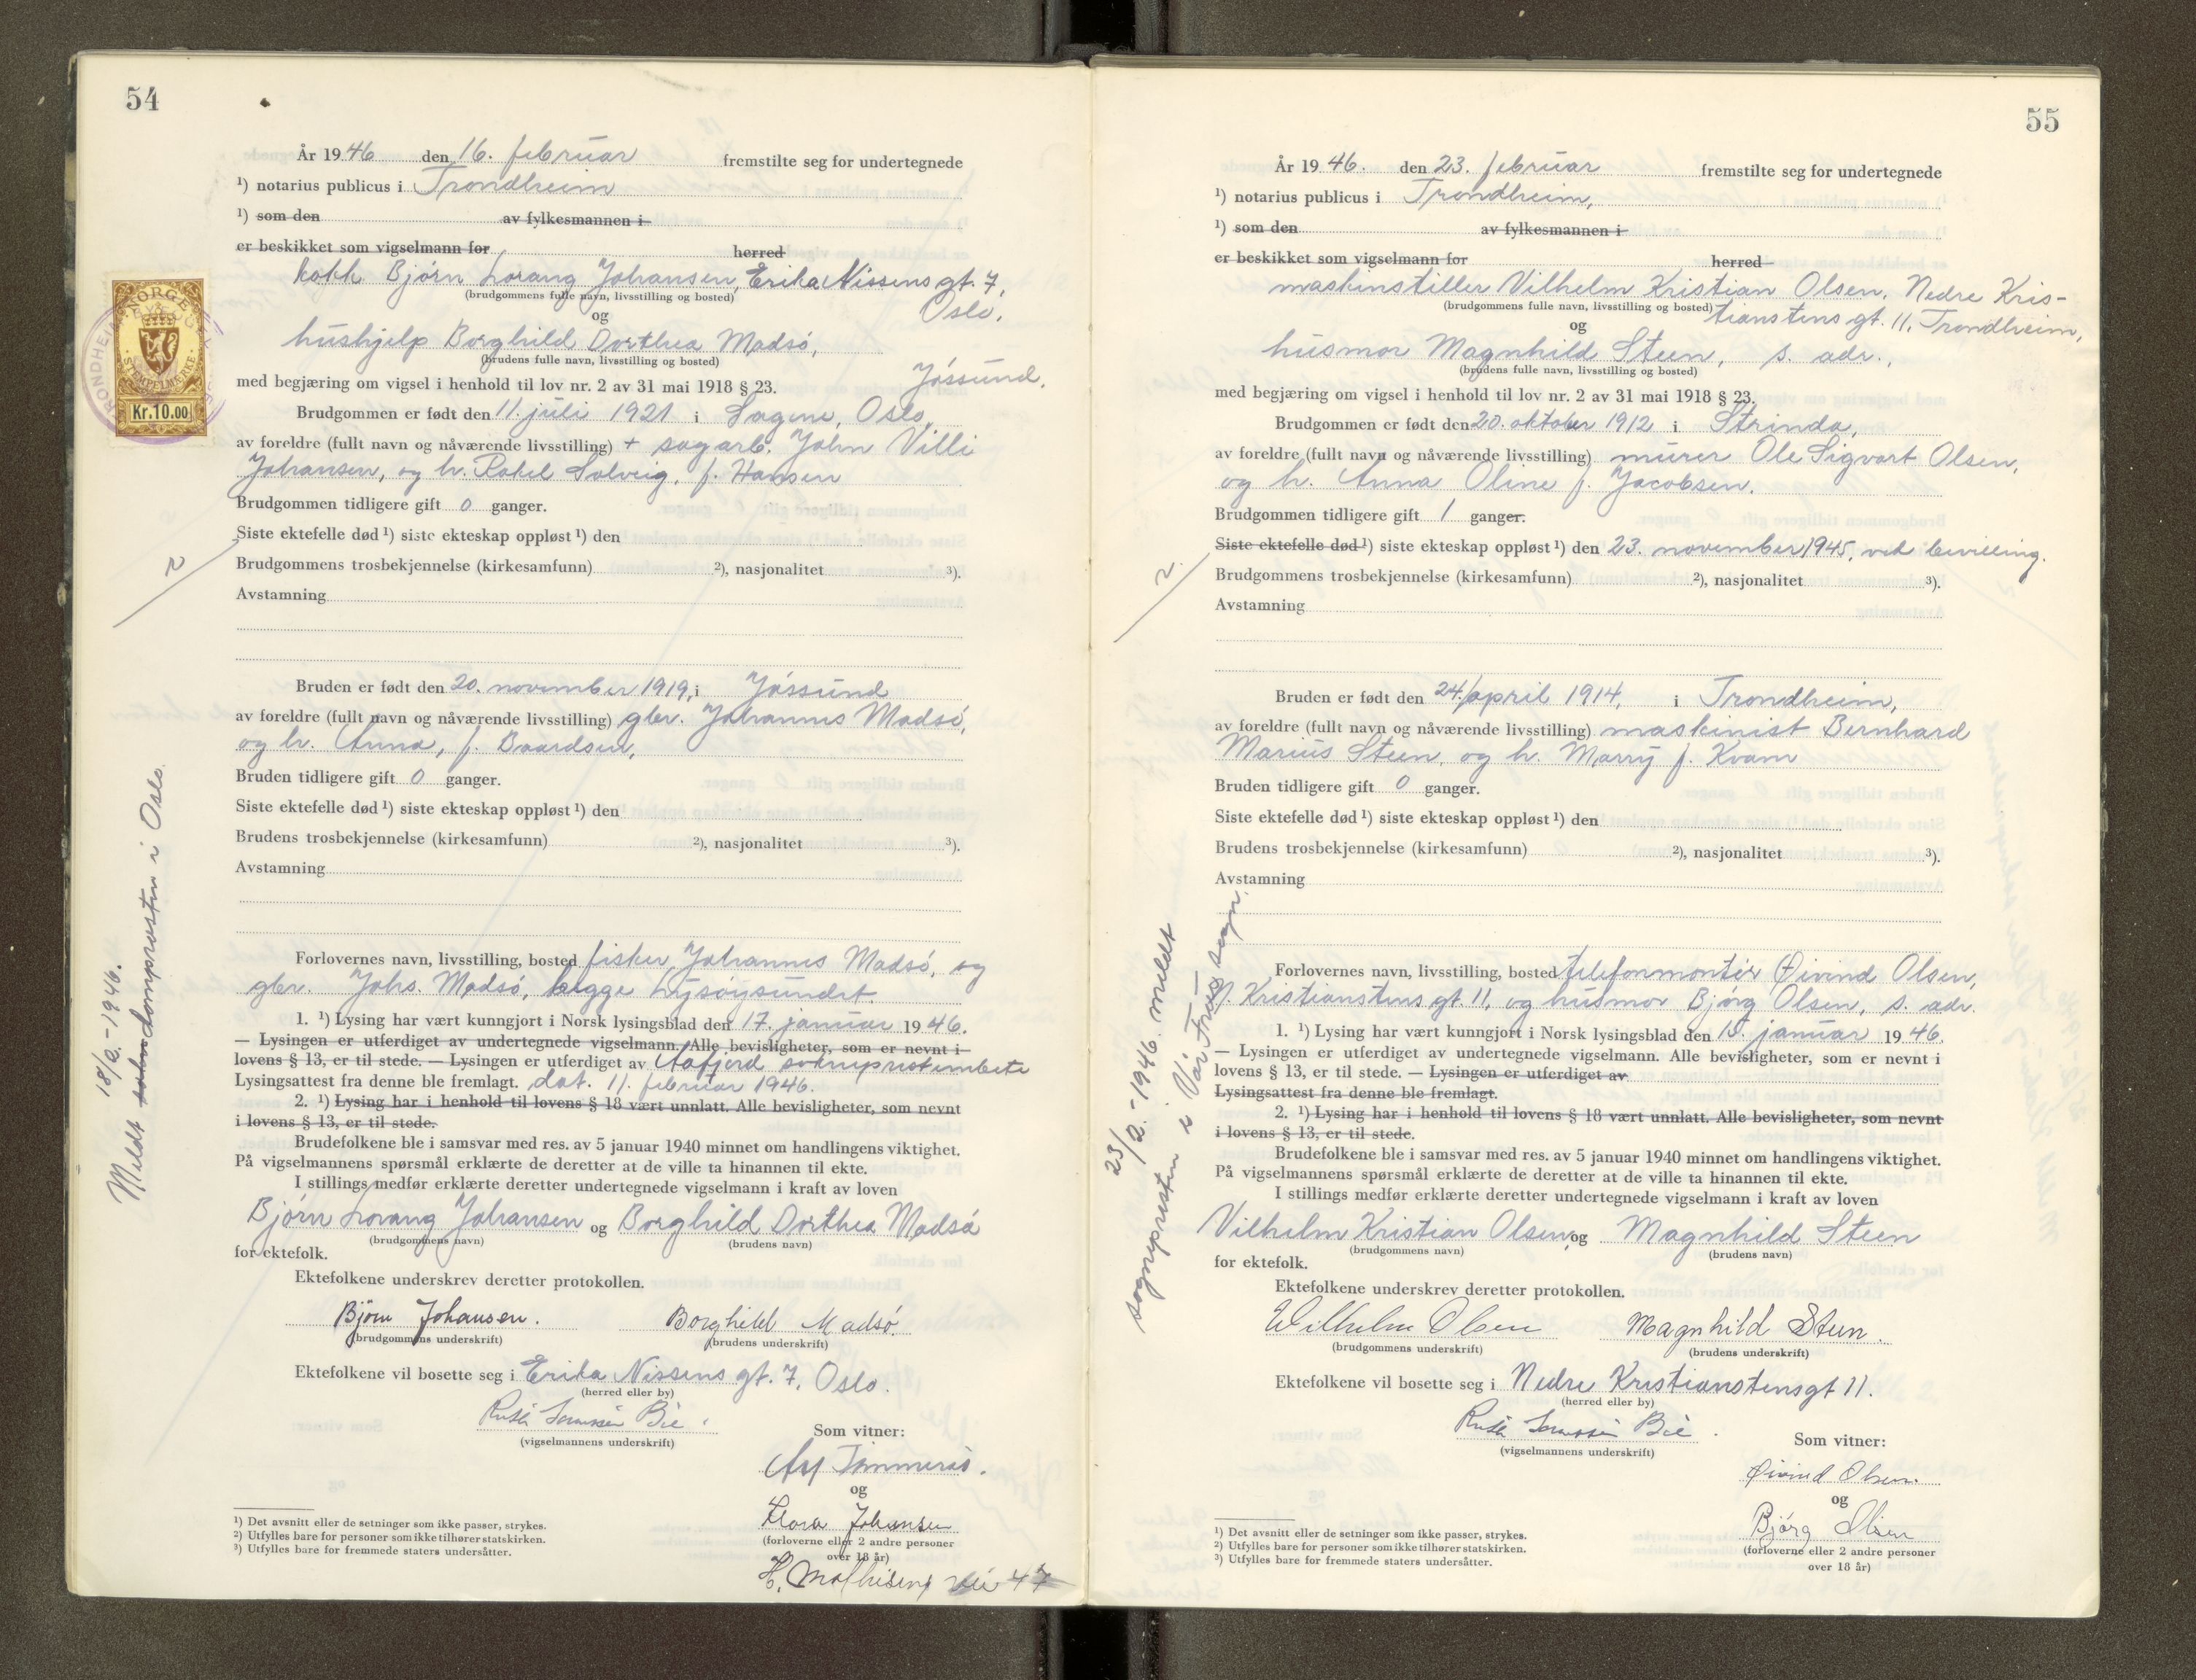 54
År 1946 den 16. februar fremstilte seg for undertegnede
¹) notarius publicus i Trondheim
¹) som den av fylkesmannen i
er beskikket som vigselmann for herred
kokk Bjørn Lorang Johansen, Erika Nissens gt. 7,
(brudgommens fulle navn, livsstilling og bosted)
Oslo.
og
hushjelp Borghild Dorthea Madsø,
(brudens fulle navn, livsstilling og bosted)
Jøssund.
med begjæring om vigsel i henhold til lov nr. 2 av 31 mai 1918 § 23.
Brudgommen er født den 11. juli 1921 i Sagene, Oslo,
av foreldre (fullt navn og nåværende livsstilling) + sagarb. John Villi
Johansen, og h. Rakel Solveig, f. Hansen
Brudgommen tidligere gift 0 ganger.
Siste ektefelle død ¹) siste ekteskap oppløst ¹) den
Brudgommens trosbekjennelse (kirkesamfunn) ²), nasjonalitet ³).
Avstamning
Bruden er født den 20. november 1919, i Jøssund
av foreldre (fullt navn og nåværende livsstilling) gbr. Johannes Madsø,
og h. Anna, f. Baardsen,
Bruden tidligere gift 0 ganger.
Siste ektefelle død ¹) siste ekteskap oppløst ¹) den
Brudens trosbekjennelse (kirkesamfunn) ²), nasjonalitet ³).
Avstamning
Forlovernes navn, livsstilling, bosted fisker Johannes Madsø, og
gbr. Johs. Madsø, begge Lysøysundet.
1. ¹) Lysing har vært kunngjort i Norsk lysingsblad den 17. januar 1946.
— Lysingen er utferdiget av undertegnede vigselmann. Alle bevisligheter, som er nevnt i
lovens § 13, er til stede. — Lysingen er utferdiget av Aafjord sokneprestembete
Lysingsattest fra denne ble fremlagt. dat. 11. februar 1946.
2. ¹) Lysing har i henhold til lovens § 18 vært unnlatt. Alle bevisligheter, som nevnt
i lovens § 13, er til stede.
Brudefolkene ble i samsvar med res. av 5 januar 1940 minnet om handlingens viktighet.
På vigselmannens spørsmål erklærte de deretter at de ville ta hinannen til ekte.
I stillings medfør erklærte deretter undertegnede vigselmann i kraft av loven
Bjørn Lorang Johansen og Borghild Dorthea Madsø
(brudgommens navn) (brudens navn)
for ektefolk.
Ektefolkene underskrev deretter protokollen.
Bjørn Johansen. Borghild Madsø.
(brudgommens underskrift) (brudens underskrift)
Ektefolkene vil bosette seg i Erika Nissens gt. 7, Oslo.
(herred eller by)
Ruth Bie.
(vigselmannens underskrift)
Som vitner:
Tømmerås.
og
Klara Johansen
(forloverne eller 2 andre personer
over 18 år)
H. Mathisens vei 47
¹) Det avsnitt eller de setninger som ikke passer, strykes.
²) Utfylles bare for personer som ikke tilhører statskirken.
³) Utfylles bare for fremmede staters undersåtter.
NORGE
STEMPELMERKE
Kr.10.00
TRONDHEIM
2
18/2.-1946.
Meldt domprosten i Oslo.
55
År 1946. den 23. februar fremstilte seg for undertegnede
¹) notarius publicus i Trondheim,
¹) som den av fylkesmannen i
er beskikket som vigselmann for herred
maskinstiller Vilhelm Kristian Olsen, Nedre Kris-
(brudgommens fulle navn, livsstilling og bosted) tianstens gt. 11, Trondheim,
og
husmor Magnhild Steen, s. adr.,
(brudens fulle navn, livsstilling og bosted)
med begjæring om vigsel i henhold til lov nr. 2 av 31 mai 1918 § 23.
Brudgommen er født den 20. oktober 1912 i Strinda,
av foreldre (fullt navn og nåværende livsstilling) murer Ole Sigvart Olsen,
og h. Anna Oline f. Jacobsen.
Brudgommen tidligere gift 1 ganger.
Siste ektefelle død ¹) siste ekteskap oppløst ¹) den 23. november 1945, ved bevilling.
Brudgommens trosbekjennelse (kirkesamfunn) ²), nasjonalitet ³).
Avstamning
Bruden er født den 24. april 1914, i Trondheim,
av foreldre (fullt navn og nåværende livsstilling) maskinist Bernhard
Marius Steen, og h. Marry f. Kvam
Bruden tidligere gift 0 ganger.
Siste ektefelle død ¹) siste ekteskap oppløst ¹) den
Brudens trosbekjennelse (kirkesamfunn) ²), nasjonalitet ³).
Avstamning
Forlovernes navn, livsstilling, bosted telefonmontør Øivind Olsen,
N. Kristianstens gt. 11, og husmor Bjørg Olsen, s. adr.
1. ¹) Lysing har vært kunngjort i Norsk lysingsblad den januar 1946.
— Lysingen er utferdiget av undertegnede vigselmann. Alle bevisligheter, som er nevnt i
lovens § 13, er til stede. — Lysingen er utferdiget av
Lysingsattest fra denne ble fremlagt.
2. ¹) Lysing har i henhold til lovens § 18 vært unnlatt. Alle bevisligheter, som nevnt
i lovens § 13, er til stede.
Brudefolkene ble i samsvar med res. av 5 januar 1940 minnet om handlingens viktighet.
På vigselmannens spørsmål erklærte de deretter at de ville ta hinannen til ekte.
I stillings medfør erklærte deretter undertegnede vigselmann i kraft av loven
Vilhelm Kristian Olsen, og Magnhild Steen
(brudgommens navn) (brudens navn)
for ektefolk.
Ektefolkene underskrev deretter protokollen.
Wilhelm Olsen Magnhild Steen.
(brudgommens underskrift) (brudens underskrift)
Ektefolkene vil bosette seg i Nedre Kristianstensgt 11.
(herred eller by)
Ruth Bie.
(vigselmannens underskrift)
Som vitner:
Øivind Olsen.
og
Bjørg Olsen
(forloverne eller 2 andre personer
over 18 år)
¹) Det avsnitt eller de setninger som ikke passer, strykes.
²) Utfylles bare for personer som ikke tilhører statskirken.
³) Utfylles bare for fremmede staters undersåtter.
2.
23/2.-1946. meldt
sognepresten i Vår Frues sogn.